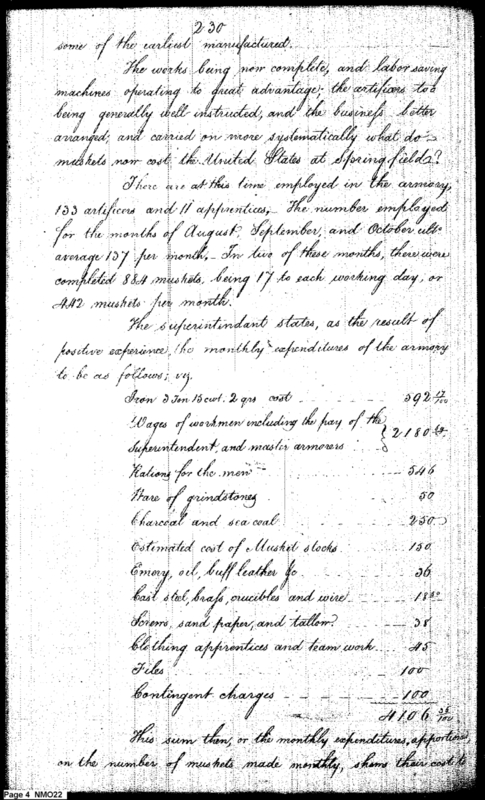 230
some of the earliest manufactured.
The works being now complete, and labor saving
machines operating to great advantage; the artificers too
being generally well instructed, and the business better
arranged, and carried on more systematically what do
muskets now cost the United States at Springfield?
There are at this time employed in the armory,
133 artificers and 11 apprentices, The number employed
for the months of August, September, and October ulto
average 137 per month, In two of these months, there were
completed 884 muskets, being 17 to each working day, or
442 muskets per month.
The superintendant states, as the result of
positive experience, the monthly expenditures of the armory
to be as follows; viz.
Iron 3 Ton 15 cwt. 2 qrs cost 392 17/100
Wages of workmen including the pay of the
Superintendent, and master armorers 2180
Rations for the men 546
Ware of grindstones 50
Charcoal and sea coal 250
Estimated cost of Musket stocks 150
Emery, oil, buff leather &c 36
Cast steel, brass, crucibles and wire 18
Screws, sand paper, and tallow 38
Clothing apprentices and team work 45
Files 100
Contingent charges 100
4106
This sum then, or the monthly expenditures, apportioned,
on the number of muskets made monthly, shews their cost to
Page 4 NMO22